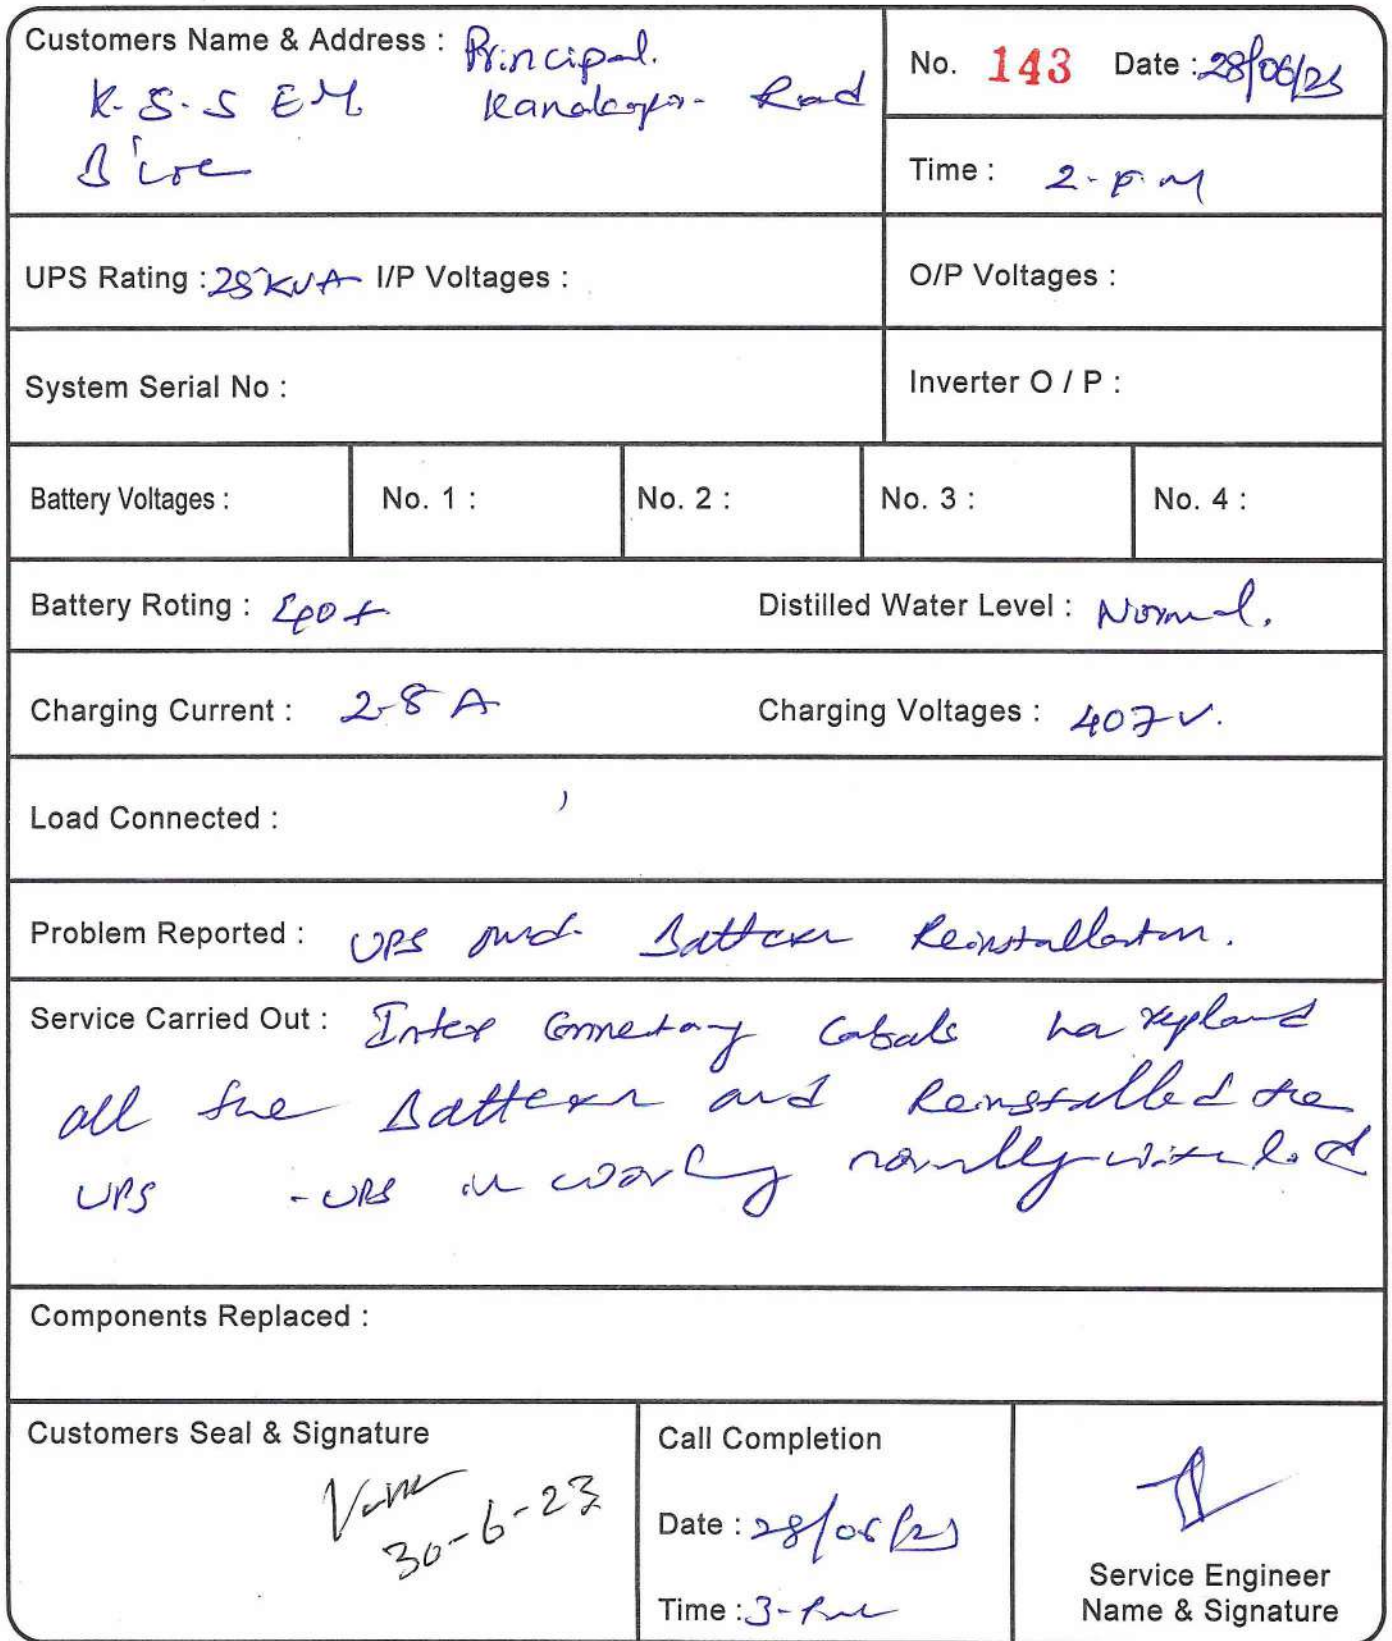 Customers Name & Address : Principal.
K.S.S EM Kanakapura Road
B'lore
No. 143 Date : 28/06/23
Time : 2-P.M
UPS Rating : 25 KVA I/P Voltages :
O/P Voltages :
System Serial No :
Inverter O / P :
Battery Voltages : No. 1 : No. 2 : No. 3 : No. 4 :
Battery Roting : Distilled Water Level : Normal.
Charging Current : 2-8 A Charging Voltages : 407 V.
Load Connected :
Problem Reported : UPS and Battery Reinstallation.
Service Carried Out : Inter Cabals replaced
all the Battery and Reinstalled the
UPS - UPS working normally with
Components Replaced :
Customers Seal & Signature
30-6-23
Call Completion
Date : 28/06/23
Time : 3-Pm
Service Engineer
Name & Signature